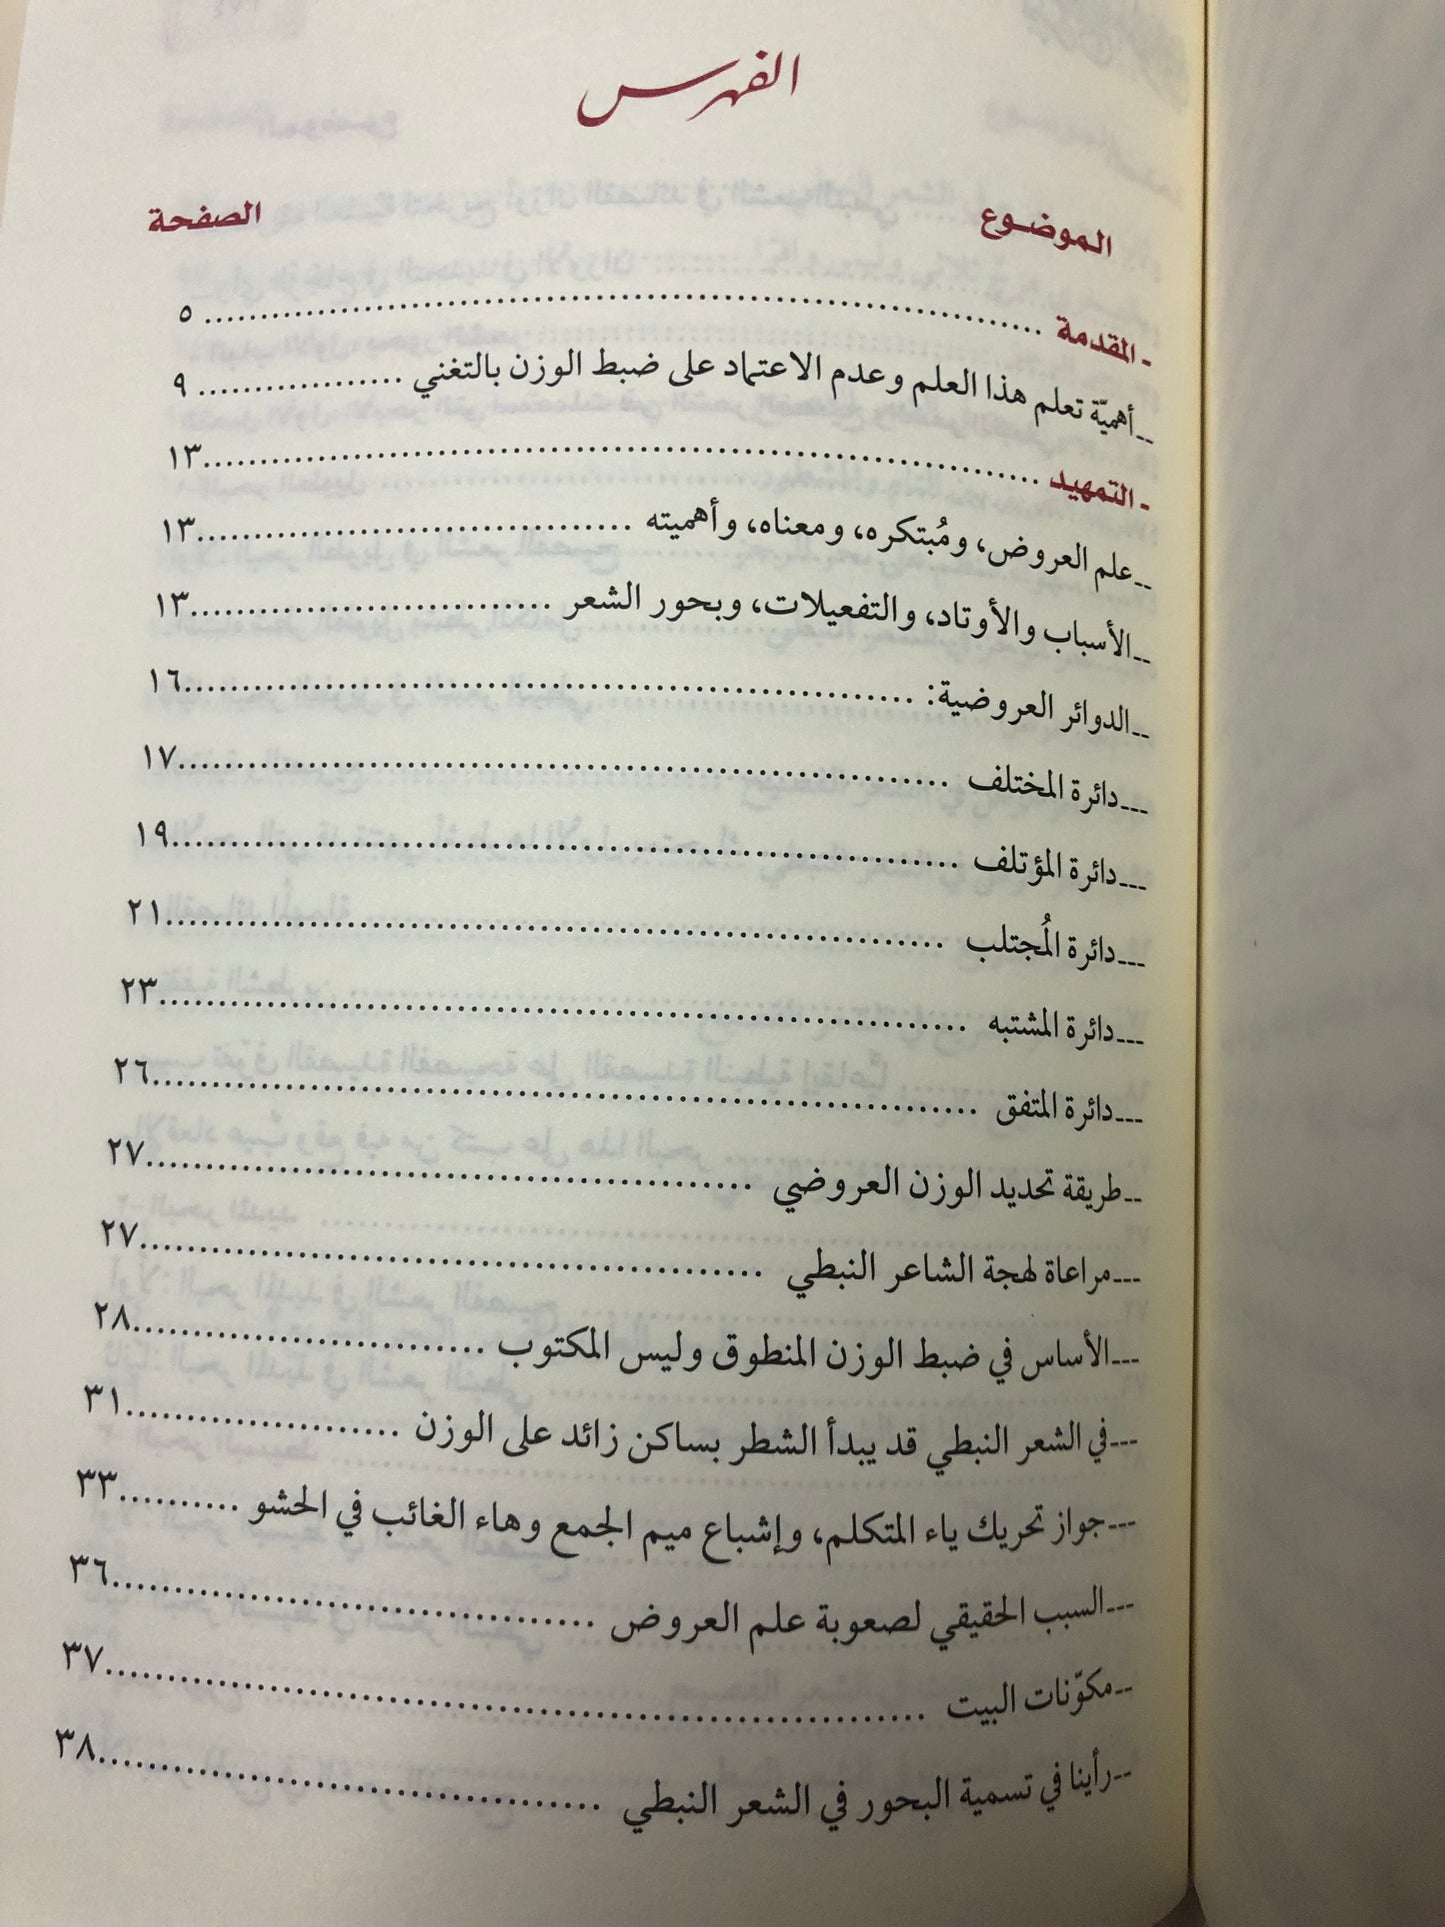 الفهرس
الموضوع الصفحة
- المقدمة ........ ٥
-- أهميّة تعلم هذا العلم وعدم الاعتماد على ضبط الوزن بالتغني ........ ٩
- التمهيد ........ ١٣
-- علم العروض، ومُبتكره، ومعناه، وأهميته ........ ١٣
-- الأسباب والأوتاد، والتفعيلات، وبحور الشعر ........ ١٣
-- الدوائر العروضية: ........ ١٦
--- دائرة المختلف ........ ١٧
--- دائرة المؤتلف ........ ١٩
--- دائرة المُجتلب ........ ٢١
--- دائرة المشتبه ........ ٢٣
--- دائرة المتفق ........ ٢٦
-- طريقة تحديد الوزن العروضي ........ ٢٧
--- مراعاة لهجة الشاعر النبطي ........ ٢٧
--- الأساس في ضبط الوزن المنطوق وليس المكتوب ........ ٢٨
--- في الشعر النبطي قد يبدأ الشطر بساكن زائد على الوزن ........ ٣١
--- جواز تحريك ياء المتكلم، وإشباع ميم الجمع وهاء الغائب في الحشو ........ ٣٣
--- السبب الحقيقي لصعوبة علم العروض ........ ٣٦
-- مكوّنات البيت ........ ٣٧
-- رأينا في تسمية البحور في الشعر النبطي ........ ٣٨